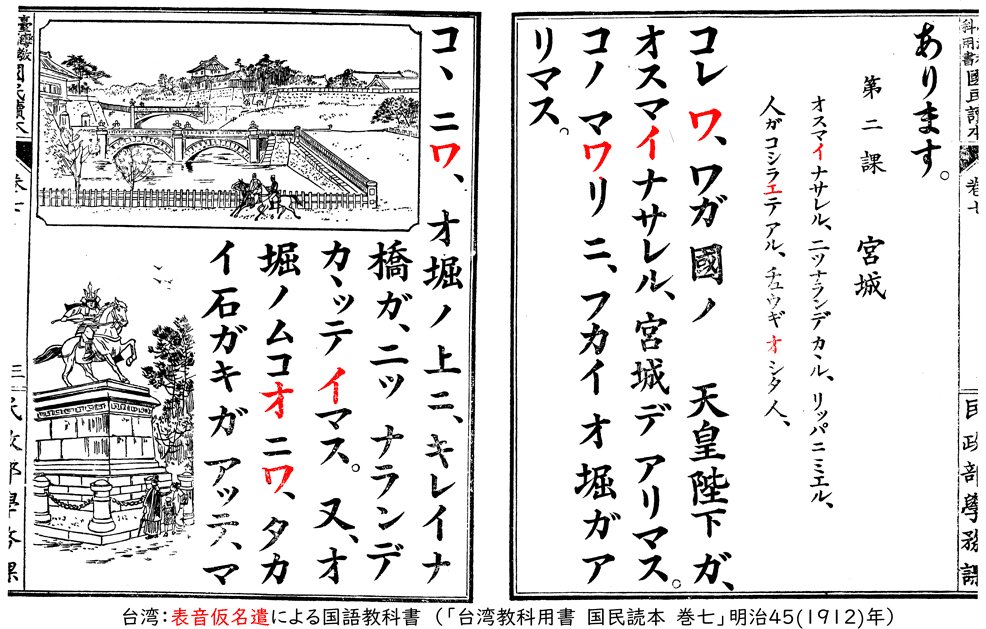 科用書國民読本
卷七
民政部學務課
あります。
第二課 宮城
オスマイナサレル、ニツナランデカヽル、リッパニミエル、
人ガコシラエテアル、チュウギオシタ人、
コレワ、ワガ國ノ 天皇陛下ガ、
オスマイナサレル、宮城デアリマス。
コノマワリニ、フカイオ堀ガア
リマス。
コヽニワ、オ堀ノ上ニ、キレイナ
橋ガ、二ツナランデ
カヽッテイマス。又、オ
堀ノムコオニワ、タカ
イ石ガキガアッテ、マ
臺灣教
國民讀本
三
台湾：表音仮名遣による国語教科書 （「台湾教科用書 国民読本 巻七」明治45(1912)年）